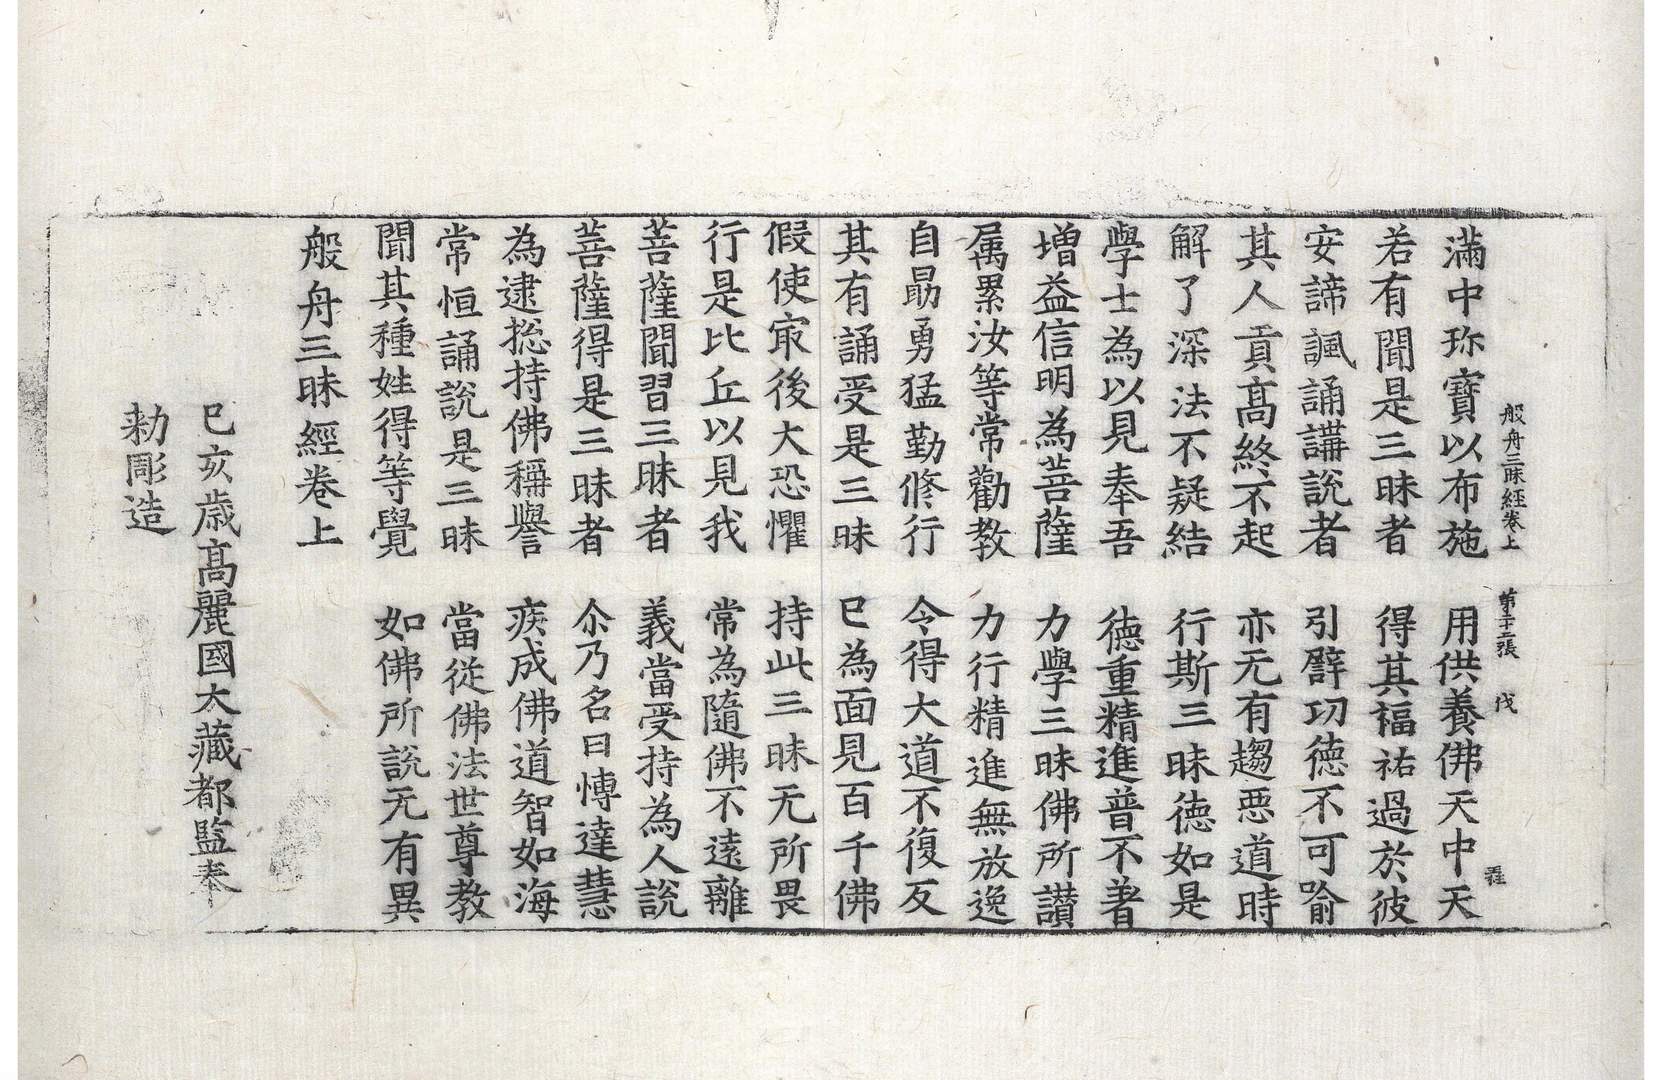 般舟三昧經卷上　第二十二張　伐
滿中珎寶以布施　用供養佛天中天
若有聞是三昧者　得其福祐過於彼
安諦諷誦講說者　引譬功德不可喻
其人貢高終不起　亦无有趣惡道時
解了深法不疑結　行斯三昧德如是
學士為以見奉吾　德重精進普不著
增益信明為菩薩　力學三昧佛所讃
属累汝等常勸教　力行精進無放逸
自勗勇猛勤修行　令得大道不復反
其有誦受是三昧　已為面見百千佛
假使㝡後大恐懼　持此三昧无所畏
行是比丘以見我　常為隨佛不遠離
菩薩聞習三昧者　義當受持為人說
菩薩得是三昧者　尒乃名曰博達慧
為逮捴持佛稱譽　疾成佛道智如海
常恒誦說是三昧　當從佛法世尊教
聞其種姓得等覺　如佛所說无有異
般舟三昧經卷上
己亥歳高麗國大藏都監奉
勑彫造